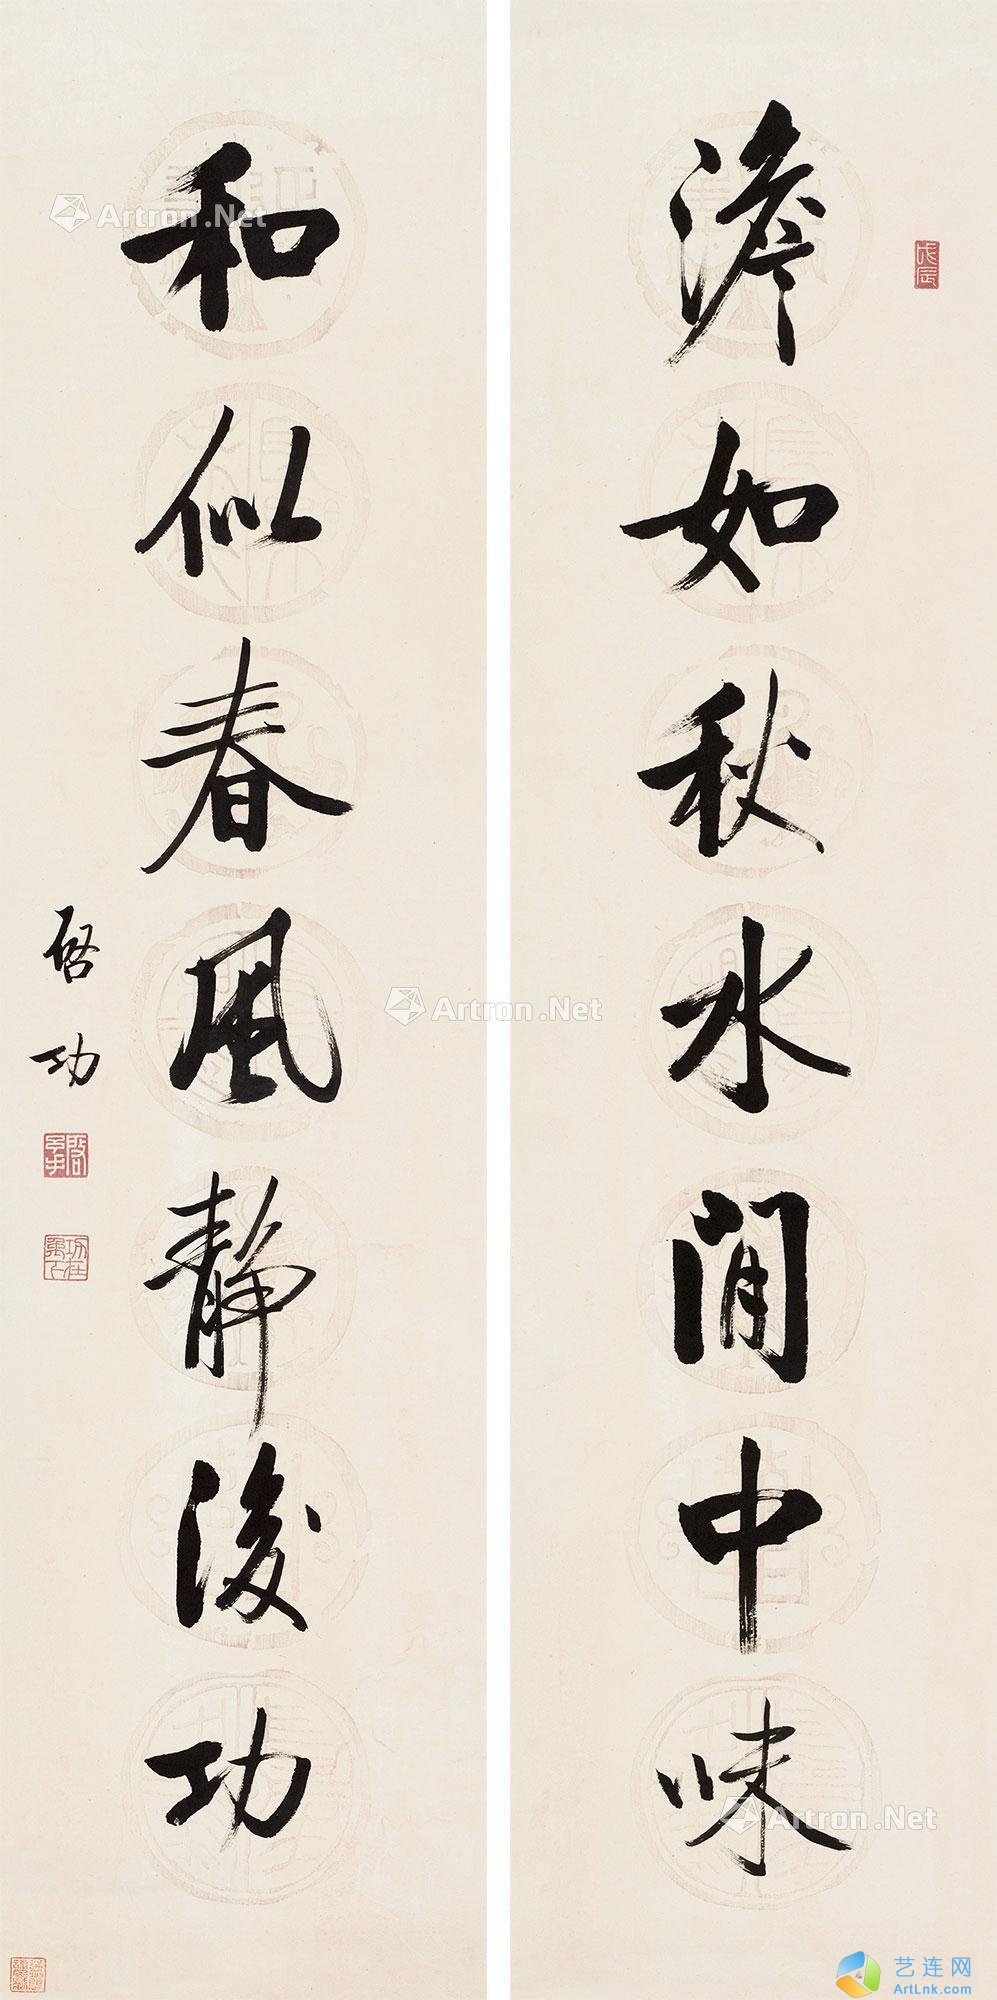 澹如秋水閒中味
和似春風靜後功
啓功
戊辰
Artron.Net
Artron.Net
Artron.Net
Artron.Net
艺连网
ArtLnk.com